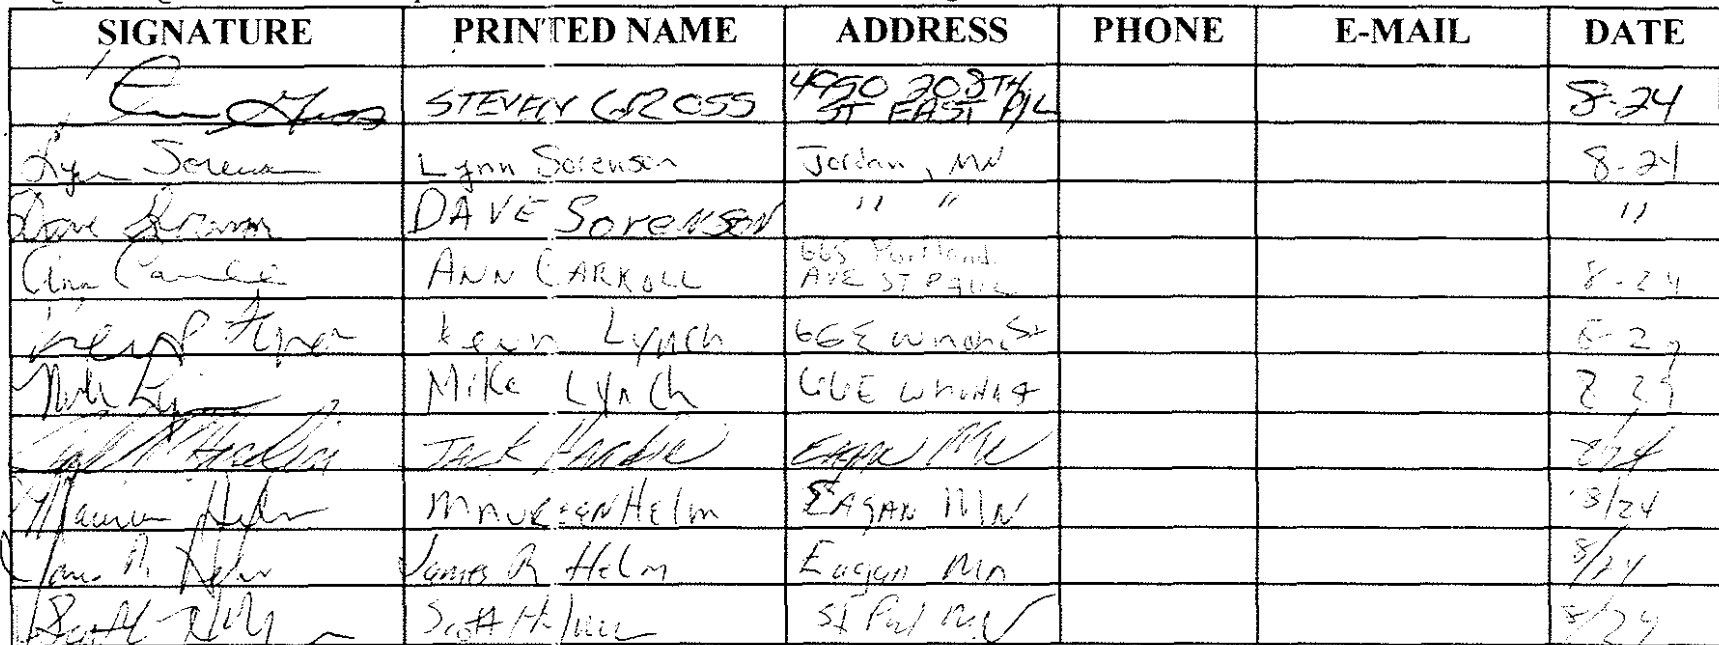 SIGNATURE PRINTED NAME ADDRESS PHONE E-MAIL DATE
STEVEN GROSS 4950 208TH ST EAST P/L 8-24
Lynn Sorenson Lynn Sorenson Jordan, MN 8-24
Dave Sorenson DAVE SorensoN " " "
Ann Carroll ANN CARROLL 665 Portland AVE ST PAUL 8-24
Lynch 66 E
Mike Lynch MiKe Lynch
Jack Eagan MN 8/24
Maureen Helm MAUREEN Helm EAgAN MN 8/24
James R Helm James R Helm Eagan Mn 8/24
Scott Helm Scott Helm St Paul MN 8/24